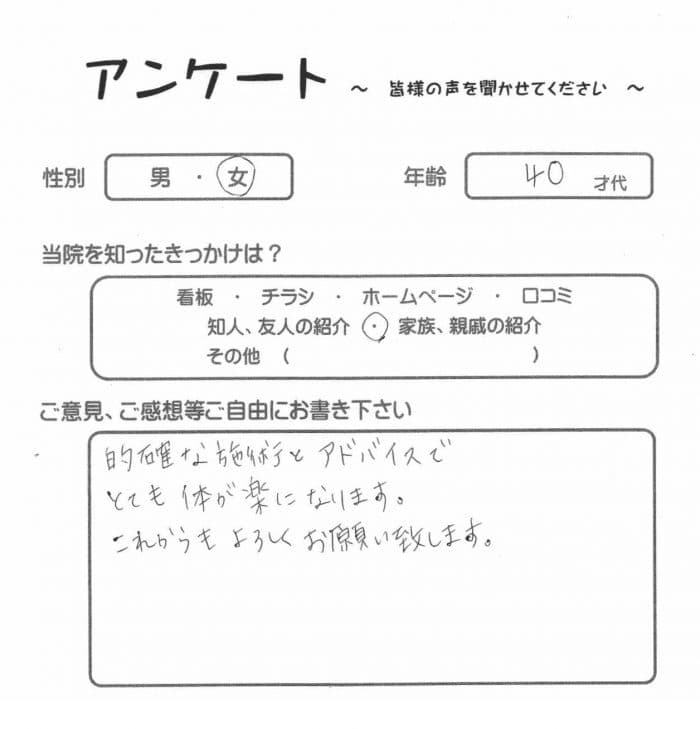 アンケート ～ 皆様の声を聞かせてください ～
性別 男 ・ 女 年齢 40 才代
当院を知ったきっかけは？
看板 ・ チラシ ・ ホームページ ・ 口コミ
知人、友人の紹介 ・ 家族、親戚の紹介
その他 （ ）
ご意見、ご感想等ご自由にお書き下さい
的確な施術とアドバイスで
とても体が楽になります。
これからもよろしくお願い致します。